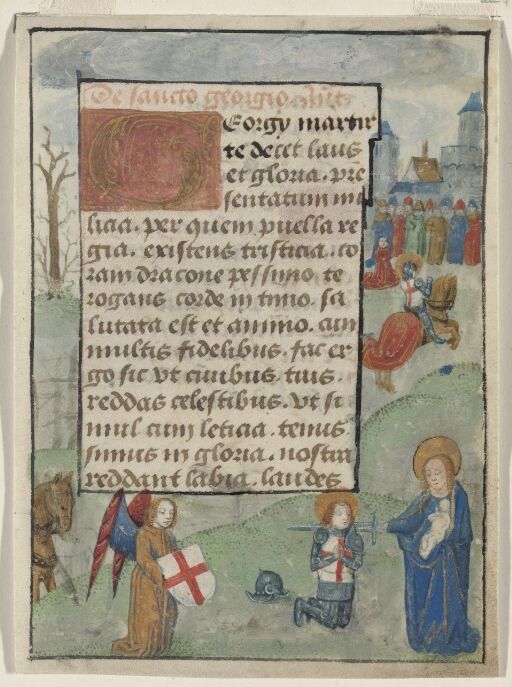 De sancto georgio
Georgy martir
te decet laus
et gloria. pre
sentatum mi
licia. per quem puella re
gia. existens tristicia. co
ram dracone pessimo. te
rogans corde in timo. sa
lutata est et animo. cun
multis fidelibus. fac er
go sic vt ciuibus. tuis
reddas celestibus. vt si
mul cum leticia. tenus
simus in gloria. nostra
reddant labia. laudes